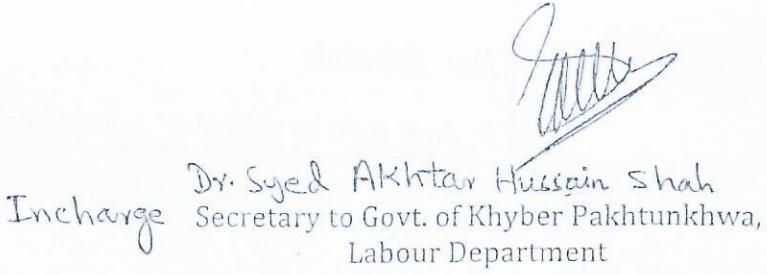 Dr. Syed Akhtar Hussain Shah
Incharge Secretary to Govt. of Khyber Pakhtunkhwa,
Labour Department